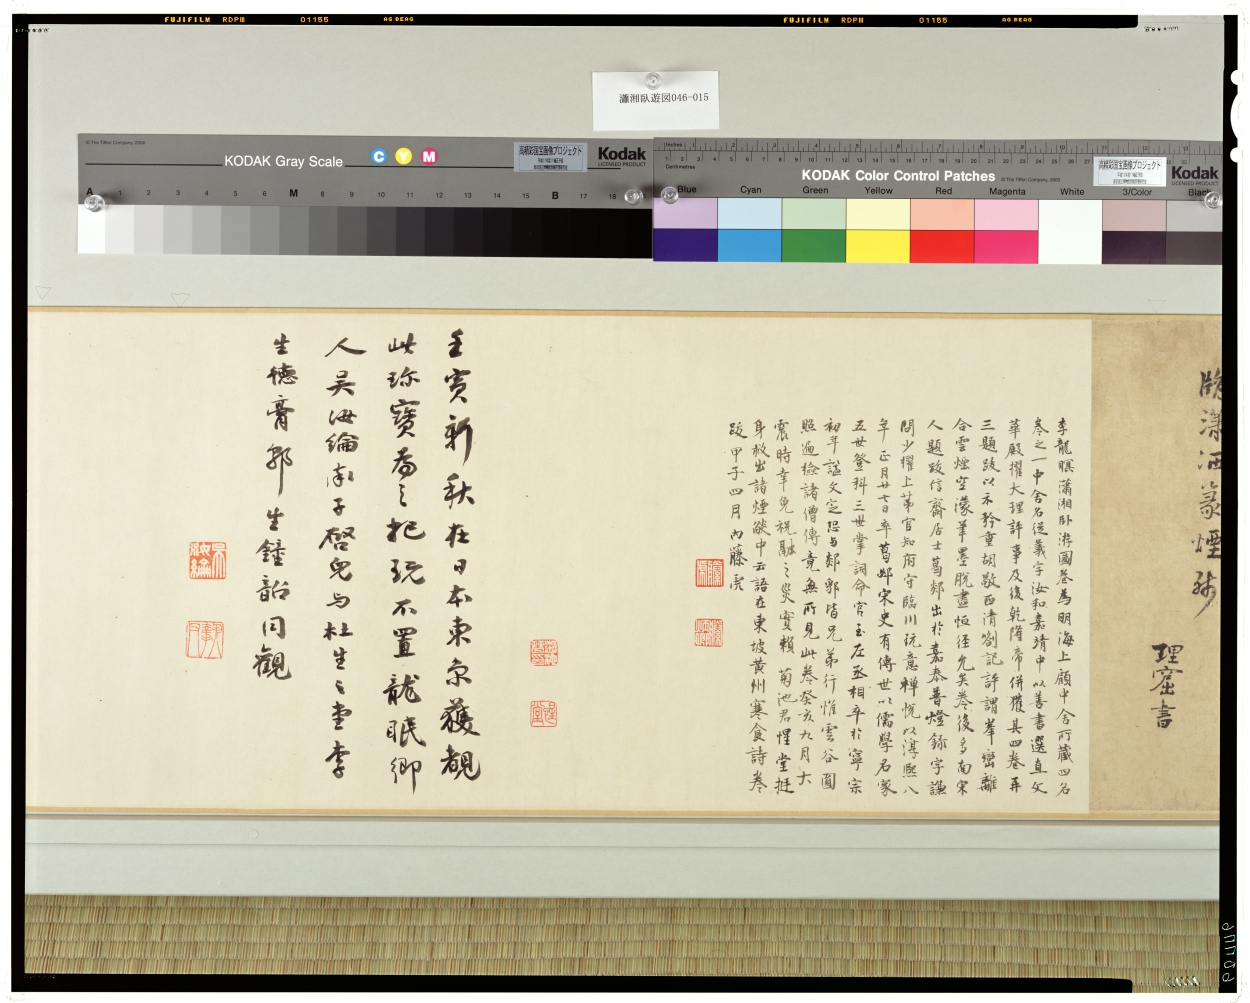 FUJIFILM RDPIII 01155 AG BEAG
FUJIFILM RDPIII 01155 AG BEAG
瀟湘臥遊図046-015
© The Tiffen Company, 2000
KODAK Gray Scale
C Y M
Kodak
LICENSED PRODUCT
A 1 2 3 4 5 6 M 8 9 10 11 12 13 14 15 B 17 18
Inches
Centimetres
KODAK Color Control Patches
© The Tiffen Company, 2000
Kodak
LICENSED PRODUCT
Blue Cyan Green Yellow Red Magenta White 3/Color Black
瀟洒篆煙
理窟書
李龍暝瀟湘卧游圖卷為明海上顧中舍所藏四名
卷之一中舍名從義字汝和嘉靖中以善書選直文
華殿擢大理評事及後乾隆帝併獲其四卷再
三題跋以示矜重胡敬西清劄記評謂峯巒離
合雲煙空濛筆墨脫盡恒徑允矣卷後多南宋
人題跋信齋居士葛郯出於嘉泰普燈錄字謙
問少擢上第官知府守臨川玩意禪悅以淳熙八
年正月廿七日卒葛邲宋史有傳世以儒學名家
五世登科三世掌詞命官至左丞相卒於寧宗
初年諡文定恐与郯皆兄弟行惟雲谷圓
照遍檢諸僧傳竟無所見此卷癸亥九月大
震時幸免祝融之災實賴 菊池君惺堂挺
身救出諸煙燄中云語在東坡黃州寒食詩卷
跋甲子四月內藤虎
壬寅新秋在日本東京獲覩
此珍寶為之把玩不置龍眠鄉
人吴汝綸率子啓兒与杜生之堂李
生德膏鄞生鐘韶同觀